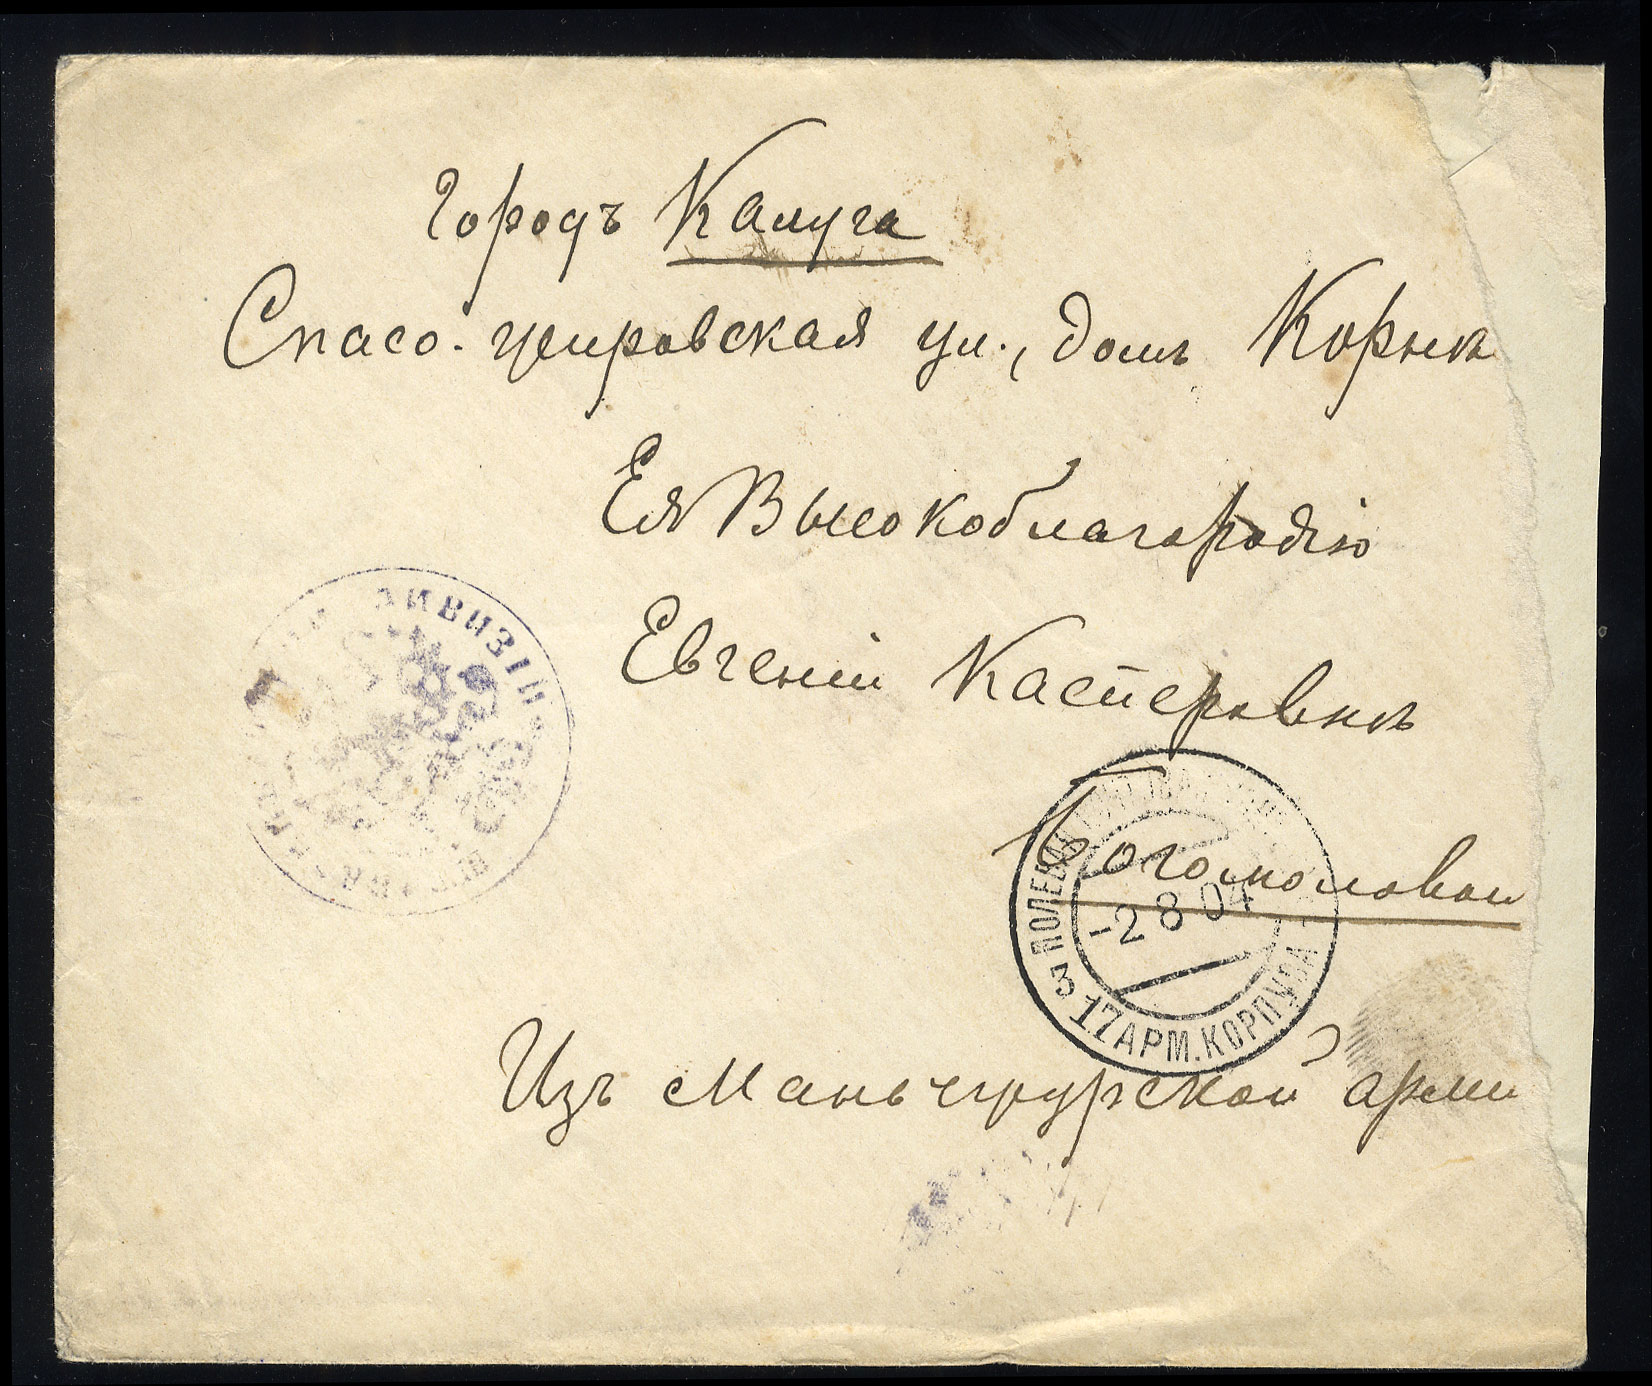 Городъ Калуга
Спасо-жировская ул., домъ Корнѣ
Ея Высокоблагородію
Евгеніи Касперовнѣ
Богомоловой
Изъ Маньчжурской арміи
ДИВИЗІИ
ПОЛЕВАЯ
-2 8 04
3 17 АРМ. КОРПУСА